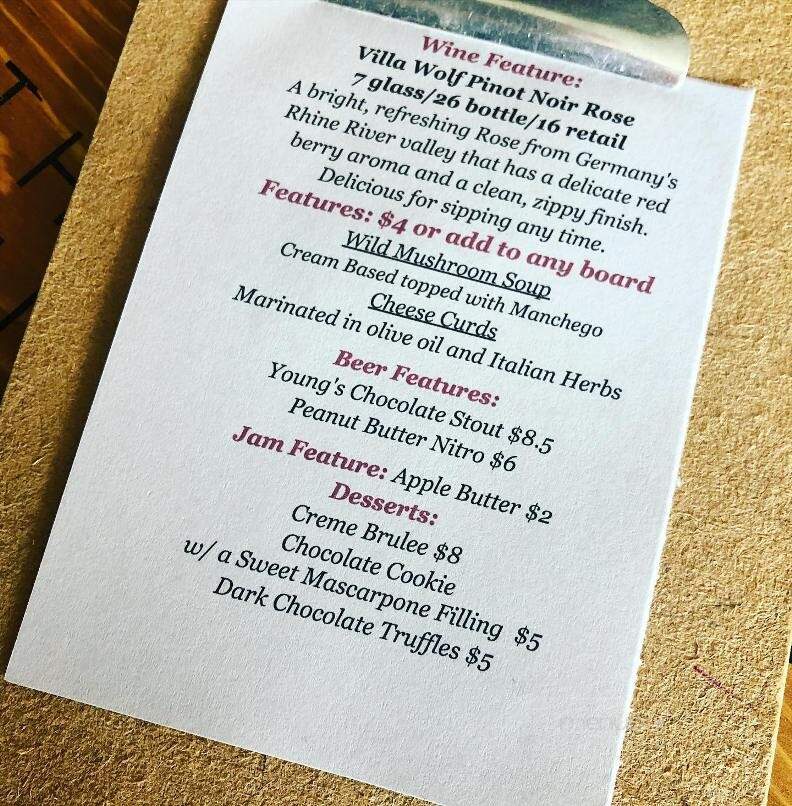 Wine Feature:
Villa Wolf Pinot Noir Rose
7 glass/26 bottle/16 retail
A bright, refreshing Rose from Germany's
Rhine River valley that has a delicate red
berry aroma and a clean, zippy finish.
Delicious for sipping any time.
Features: $4 or add to any board
Wild Mushroom Soup
Cream Based topped with Manchego
Cheese Curds
Marinated in olive oil and Italian Herbs
Beer Features:
Young's Chocolate Stout $8.5
Peanut Butter Nitro $6
Jam Feature: Apple Butter $2
Desserts:
Creme Brulee $8
Chocolate Cookie
w/ a Sweet Mascarpone Filling $5
Dark Chocolate Truffles $5